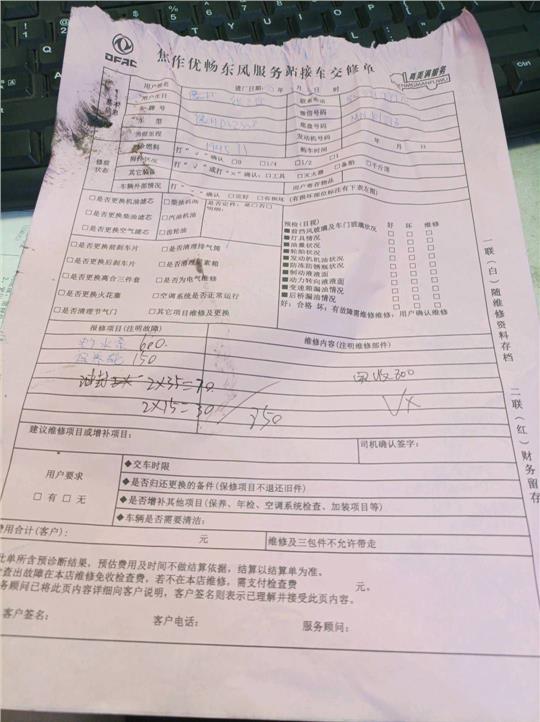 DFAC
焦作优畅东风服务站接车交修单
真美满服务
ZHENMEIMANFUWU
用户姓名 进厂日期: 年 月 日 时
用户生日 联系电话
车牌号 微信号码
车 型 底盘号码
行驶里程 1945 11 发动机号码
燃油燃料 打"√"确认 □0 □1/4 □1/2 □1 购车时间 年 月 日
附件状况 打"√"或打"×"确认: □工具 □灭火器 □备胎 □千斤顶
其它装备 用户推荐物品
车辆外部情况 打"√"确认 □完好 □有损坏 (有损坏部位标注有下表左图)
修前状态
□是否更换机油滤芯 □柴油机油
□是否更换柴油滤芯 □汽油机油
□是否更换空气滤芯 □齿轮油
□是否更换前刹车片 □是否清理排气筒
□是否更换后刹车片 □是否清理尿素箱
□是否更换离合三件套 □是否为电气维修
□是否更换火花塞 □空调系统是否正常运行
□是否清理节气门 □其它项目维修及更换
预检(目视) 好 坏 维修
■前挡风玻璃及车门玻璃状况
■灯具情况
■油量状况
■轮胎状况
■发动机机油状况
■防冻防锈瓶状况
■制动液液面
■动力转向液液面
■变速箱漏油情况
■后桥漏油情况
好: 合格 坏: 有故障需维修维修, 用户确认维修
报修项目(注明故障) 维修内容(注明维修部件)
600.
150
油封 2×35=70 实收800
2×15=30 850 VX
建议维修项目或增补项目: 司机确认签字:
用户要求
□有 □无
◆交车时限
◆是否归还更换的备件(保修项目不退还旧件)
◆是否增补其他项目(保养、年检、空调系统检查、加装项目等)
◆车辆是否需要清洁:
费用合计(客户): 元 维修及三包件不允许带走
此单所含预诊断结果, 预估费用及时间不做结算依据, 结算以结算单为准。
检查出故障在本店维修免收检查费, 若不在本店维修, 需支付检查费 元。
务顾问已将此页内容详细向客户说明, 客户签名则表示已理解并接受此页内容。
客户签名: 客户电话: 服务顾问:
一联(白)随维修资料存档
二联(红)财务留存